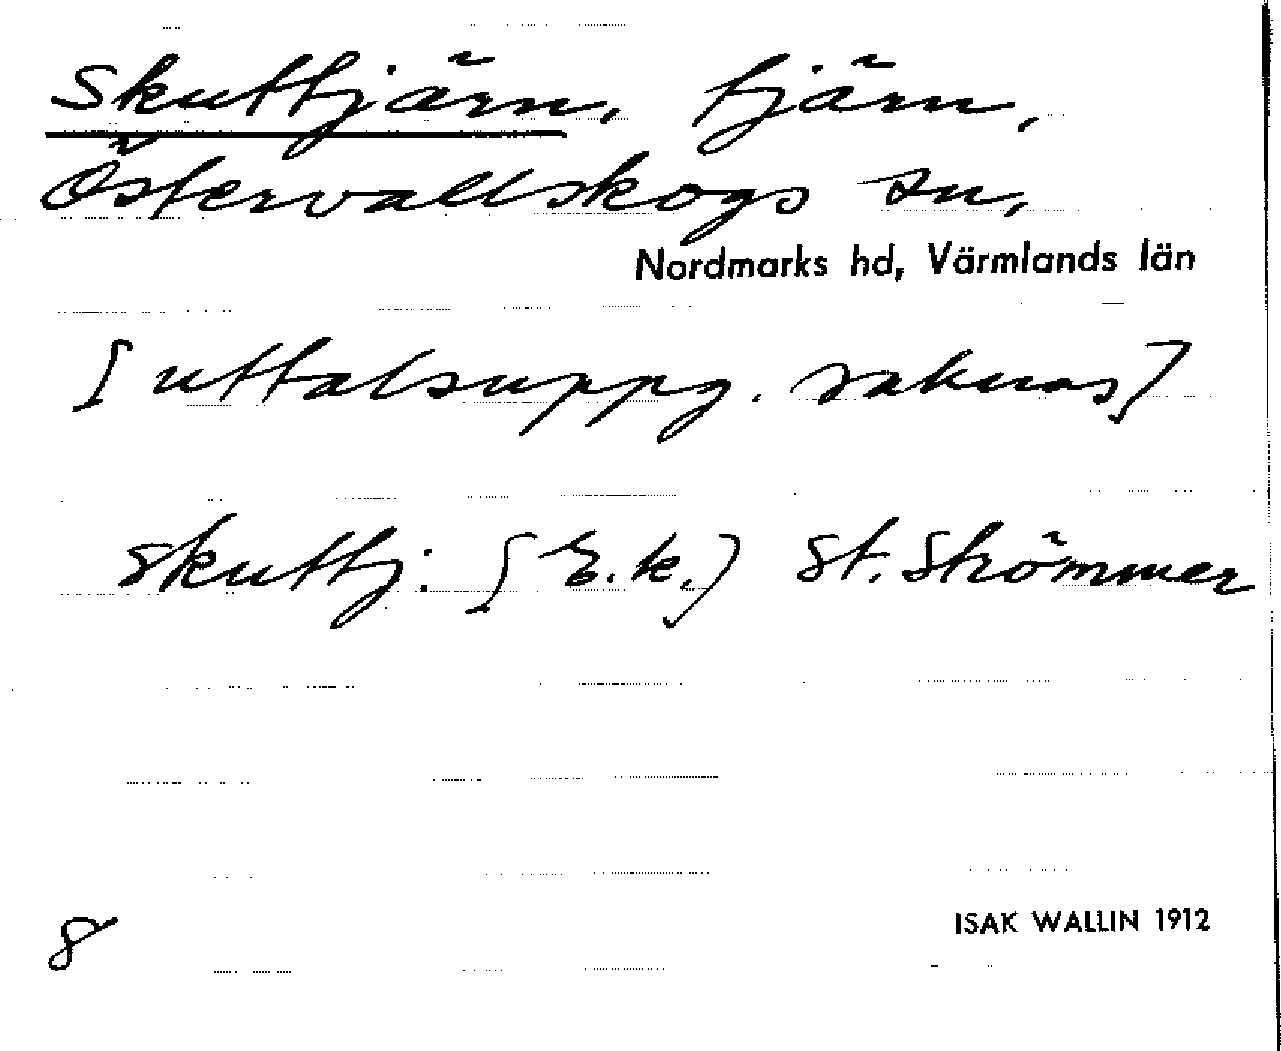 Skuttjärn, tjärn,
Östervallskogs sn,
Nordmarks hd, Värmlands län
[uttalsuppg. saknas]
Skuttj: [E.k.] St. Strömmer
8
ISAK WALLIN 1912